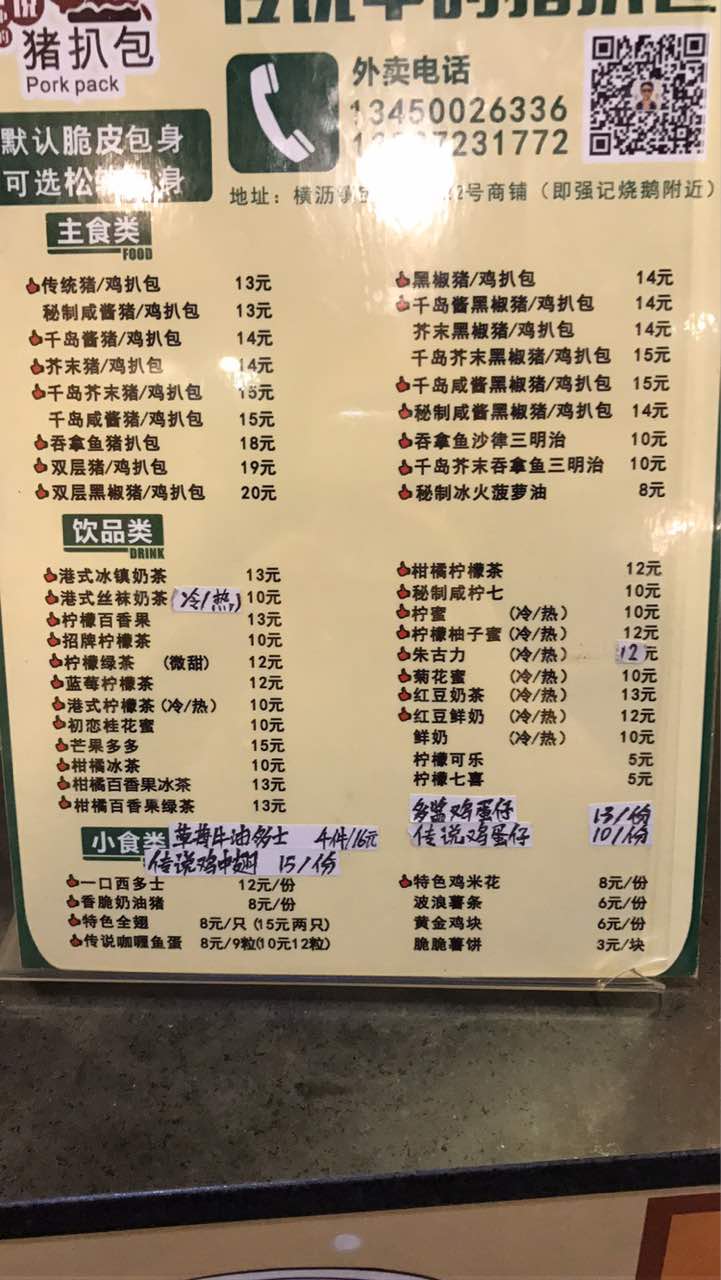 猪扒包
Pork pack
外卖电话
13450026336
7231772
默认脆皮包身
可选松 身
地址：横沥 2号商铺（即强记烧鹅附近）
主食类
FOOD
传统猪/鸡扒包 13元
秘制咸酱猪/鸡扒包 13元
千岛酱猪/鸡扒包 14元
芥末猪/鸡扒包 14元
千岛芥末猪/鸡扒包 15元
千岛咸酱猪/鸡扒包 15元
吞拿鱼猪扒包 18元
双层猪/鸡扒包 19元
双层黑椒猪/鸡扒包 20元
黑椒猪/鸡扒包 14元
千岛酱黑椒猪/鸡扒包 14元
芥末黑椒猪/鸡扒包 14元
千岛芥末黑椒猪/鸡扒包 15元
千岛咸酱黑椒猪/鸡扒包 15元
秘制咸酱黑椒猪/鸡扒包 14元
吞拿鱼沙律三明治 10元
千岛芥末吞拿鱼三明治 10元
秘制冰火菠萝油 8元
饮品类
DRINK
港式冰镇奶茶 13元
港式丝袜奶茶(冷/热) 10元
柠檬百香果 13元
招牌柠檬茶 10元
柠檬绿茶 (微甜) 12元
蓝莓柠檬茶 12元
港式柠檬茶(冷/热) 10元
初恋桂花蜜 10元
芒果多多 15元
柑橘冰茶 10元
柑橘百香果冰茶 13元
柑橘百香果绿茶 13元
柑橘柠檬茶 12元
秘制咸柠七 10元
柠蜜 (冷/热) 10元
柠檬柚子蜜(冷/热) 12元
朱古力 (冷/热) 12元
菊花蜜 (冷/热) 10元
红豆奶茶 (冷/热) 13元
红豆鲜奶 (冷/热) 12元
鲜奶 (冷/热) 10元
柠檬可乐 5元
柠檬七喜 5元
多酱鸡蛋仔 13/份
传说鸡蛋仔 10/份
小食类
草莓牛油多士 4件/16元
传说鸡中翅 15/份
一口西多士 12元/份
香脆奶油猪 8元/份
特色全翅 8元/只(15元两只)
传说咖喱鱼蛋 8元/9粒(10元12粒)
特色鸡米花 8元/份
波浪薯条 6元/份
黄金鸡块 6元/份
脆脆薯饼 3元/块